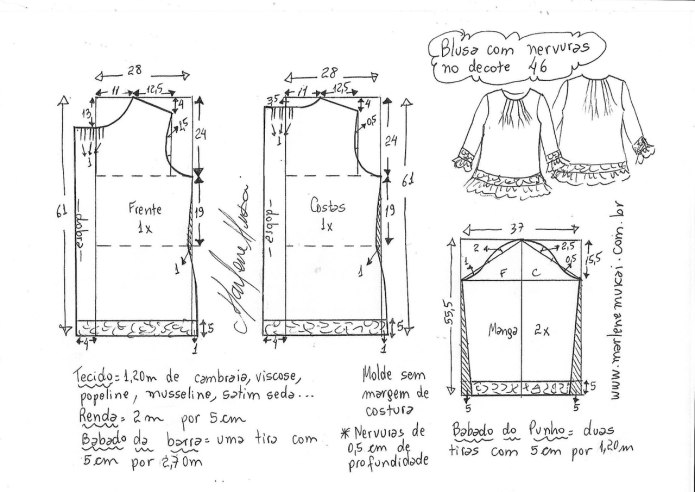 Blusa com nervuras
no decote 46
28
11
12,5
4
13
1,5
24
1
61
dobra
Frente
1x
19
1
5
4
1
28
3,5
11
12,5
4
0,5
24
1
61
dobra
Costas
1x
19
1
5
4
1
Marlene Mukai
37
2
2,5
1
0,5
15,5
F
C
55,5
Manga
2x
5
5
5
www.marlenemukai.com.br
Tecido = 1,20m de cambraia, viscose,
popeline, musseline, satim seda...
Renda = 2m por 5cm
Babado da barra = uma tira com
5cm por 2,70m
Molde sem
margem de
costura
* Nervuras de
0,5 cm de
profundidade
Babado do Punho = duas
tiras com 5cm por 1,20m